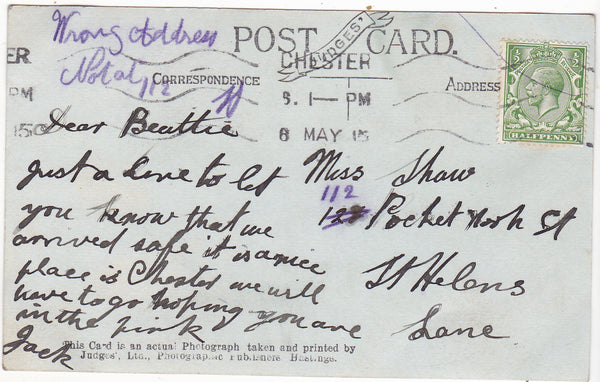 Wrong Address
Not at 112
POST CARD.
JUDGES'
CHESTER
CORRESPONDENCE
ADDRESS
ER
PM
15
8. 1 — PM
8 MAY 15
HALFPENNY
Dear Beattie
Just a Line to let
you know that we
arrived safe it is a nice
place is Chester we will
have to go hoping you are
in the pink
Jack
Miss Shaw
112
Pocket Nook St
St Helens
Lanc
This Card is an actual Photograph taken and printed by
Judges', Ltd., Photographic Publishers Hastings.